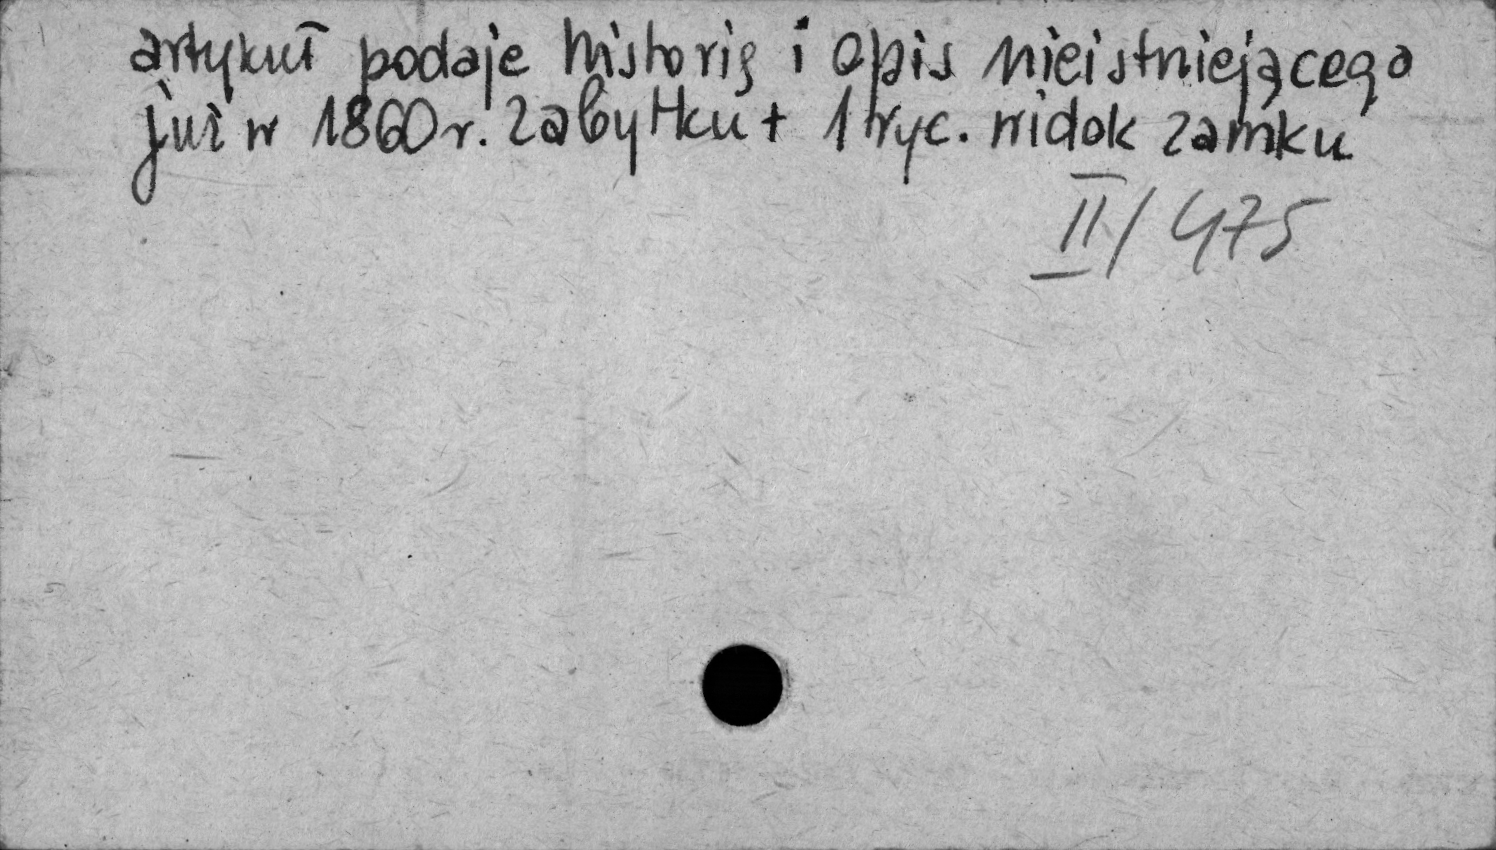 artykuł podaje historię i opis nieistniejącego
już w 1860 r. zabytku + 1 ryc. widok zamku
II/475